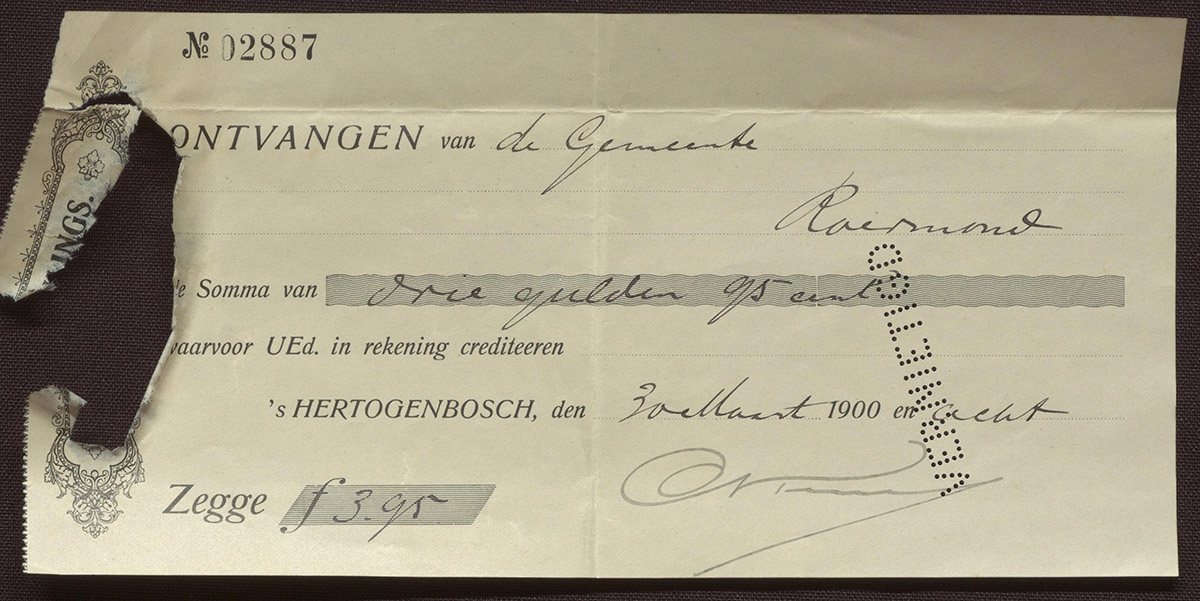 № 02887
INGS.
ONTVANGEN van de Gemeente
Roermond
de Somma van drie gulden 95 cent
waarvoor UEd. in rekening crediteeren
's HERTOGENBOSCH, den 30 Maart 1900 en acht
Zegge f 3.95